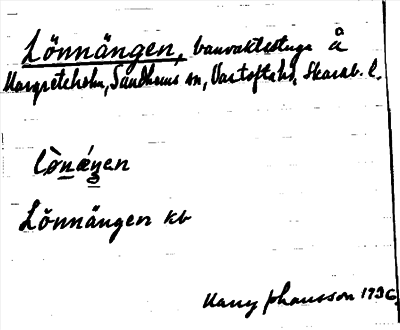 Lönnängen, banvaktsstuga å
Margreteholm, Sandhems sn, Vartofta hd, Skarab. l.
Lönnängen kb
Harry Johansson 1936